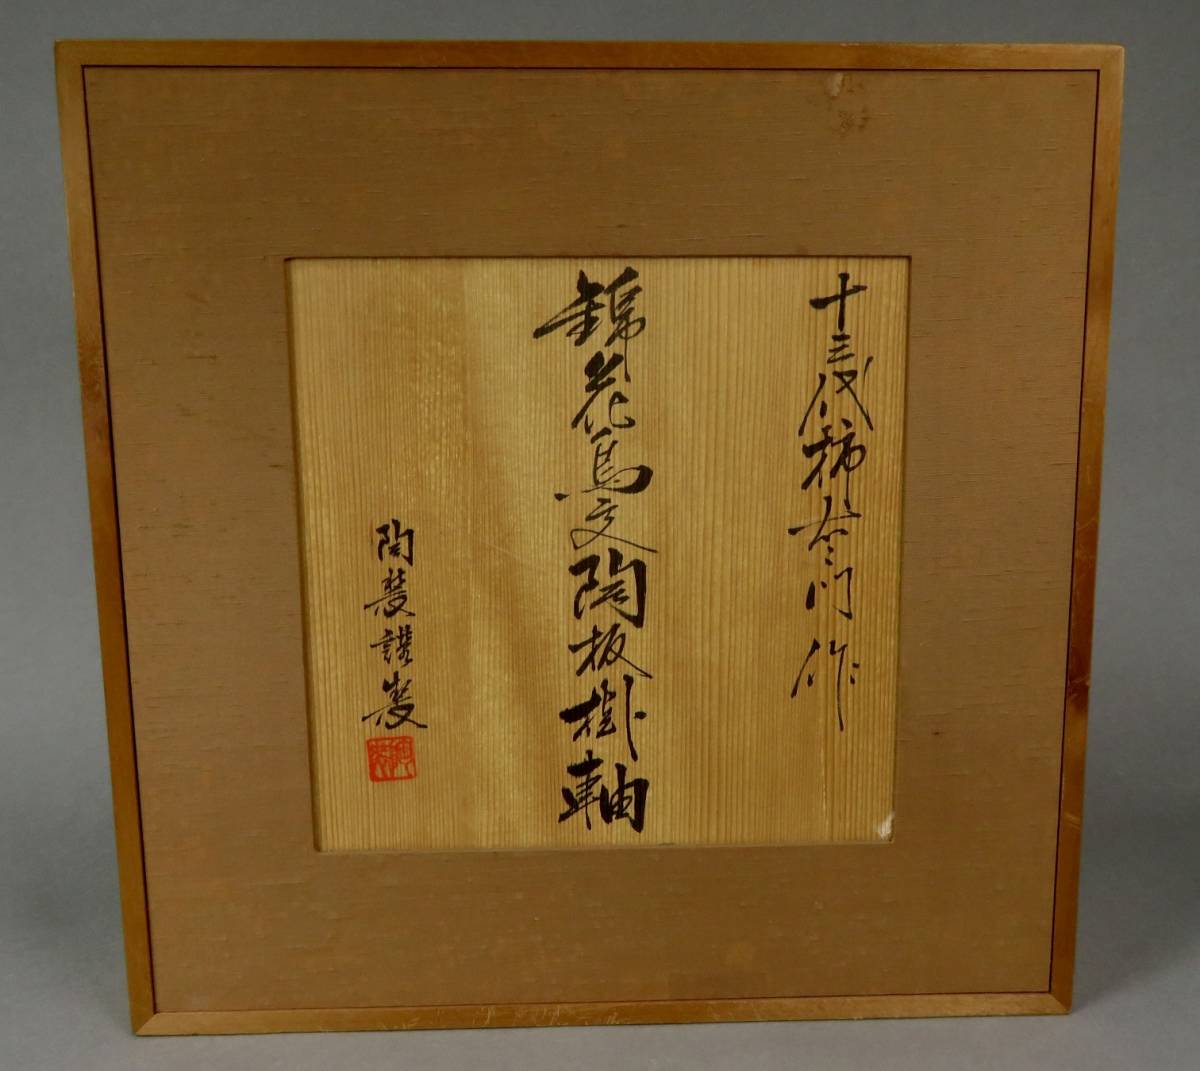 十三代柿右衛門作
錦花鳥文陶板掛軸
陶